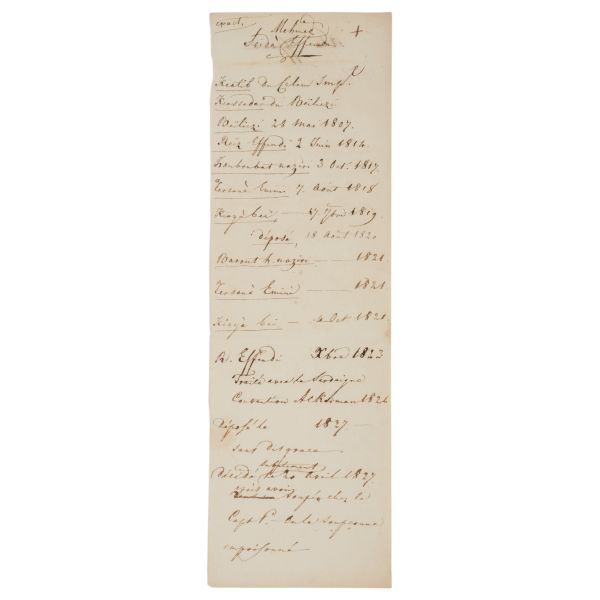 exact.
Mehmed
Seida Effendi
Keatib du Celam Impl.
Kessedar du Beilikzi
Beilikzi 28 Mai 1807.
Reis Effendi 2 Juin 1814.
nazir 3 Oct. 1817
Tersanà Emini 7 Août 1818
Kiayà bei, — 17. 7bre 1819.
déposé, 18 Août 1820
Barout h. nazir — 1821
Tersanà Emini — 1821
Kiayà bei — Oct 1821.
R. Effendi Xbre 1822
Traité avec la Sardaigne
Convention Akkerman 1826
Déposé le 1827. —
sans disgrace
subitement
Décédé le 20 Avril 1827.
après avoir
soupé chez le
Capt. P. — on le soupçonna
empoisonné —